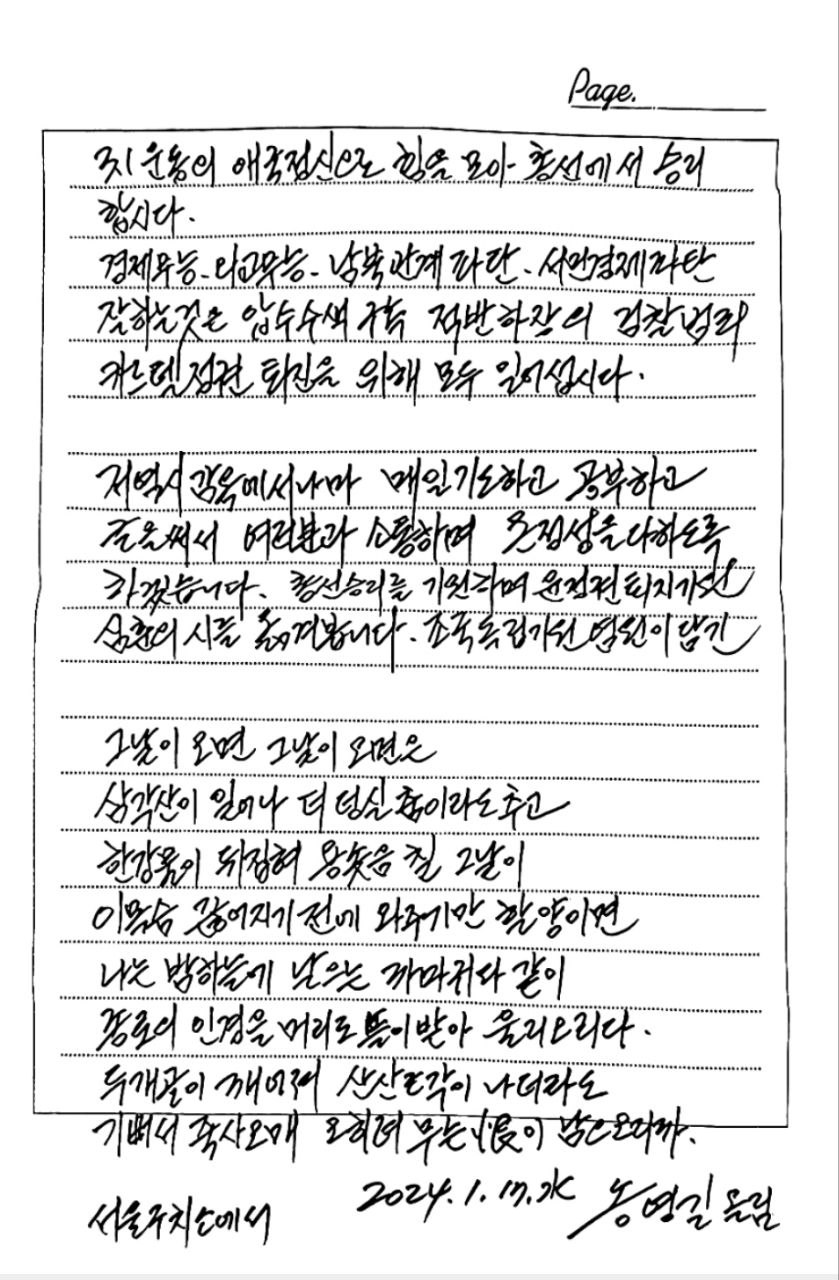 Page.
3.1 운동의 애국정신으로 힘을 모아 총선에서 승리
합시다.
경제무능. 외교무능. 남북관계 파탄. 서민경제파탄
잘하는것은 압수수색 구속 적반하장의 검찰범죄
카르텔정권 퇴진을 위해 모두 일어섭시다.
저 역시 감옥에서나마 매일기도하고 공부하고
글을써서 여러분과 소통하며 온정성을 다하도록
하겠습니다. 총선승리를 기원하며 윤정권퇴진기원
심훈의 시를 옮겨봅니다. 조국독립기원 염원이 담긴
그날이 오면 그날이 오면은
삼각산이 일어나 더덩실 춤이라도 추고
한강물이 뒤집혀 용솟음 칠 그날이
이 목숨 끊어지기 전에 와주기만 할양이면
나는 밤하늘에 날으는 까마귀와 같이
종로의 인경을 머리로 들이받아 울리오리다.
두개골이 깨어져 산산조각이 나더라도
기뻐서 죽사오매 오히려 무슨 恨이 남으오리까.
서울구치소에서 2024. 1. 17. 水 송영길 올림